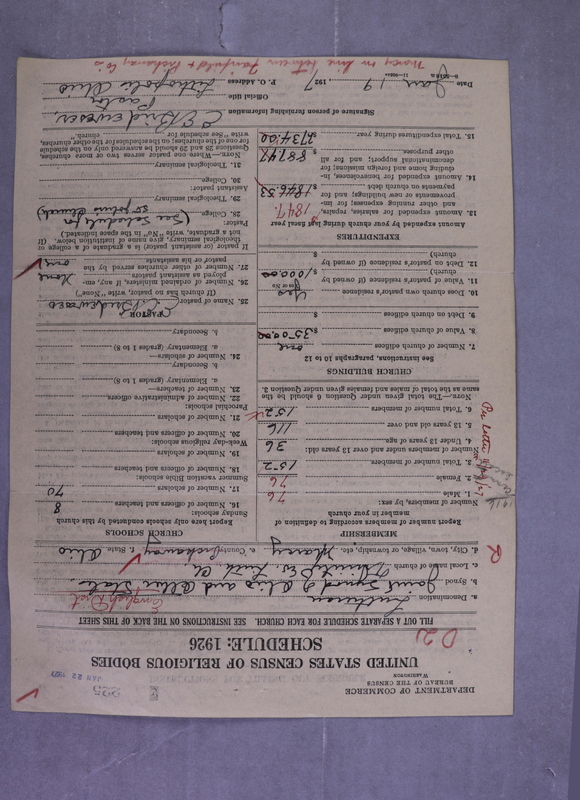 DEPARTMENT OF COMMERCE
BUREAU OF THE CENSUS
WASHINGTON
225
JAN 22 1927
UNITED STATES CENSUS OF RELIGIOUS BODIES
SCHEDULE: 1926
FILL OUT A SEPARATE SCHEDULE FOR EACH CHURCH. SEE INSTRUCTIONS ON THE BACK OF THIS SHEET
a. Denomination Lutheran English Dist
b. Synod Joint Synod of Ohio and Other States
c. Local name of church Trinity Ev. Luth Ch
d. City, town, village, or township, etc. Marcy e. County Pickaway f. State Ohio
MEMBERSHIP
Report number of members according to definition of
member in your church
Number of members, by sex:
1. Male 76
2. Female 76
3. Total number of members 152
Number of members under and over 13 years old:
4. Under 13 years of age 36
5. 13 years old and over 116
6. Total number of members 152
NOTE.—The total given under Question 6 should be the
same as the total of males and females given under Question 3.
CHURCH BUILDINGS
See instructions, paragraphs 10 to 12
7. Number of church edifices one
8. Value of church edifices $3500.00
9. Debt on church edifices $
10. Does church own pastor's residence Yes
(Yes or No)
11. Value of pastor's residence (if owned by
church) $1000.00
12. Debt on pastor's residence (if owned by
church) $
EXPENDITURES
Amount expended by your church during last fiscal year
13. Amount expended for salaries, repairs,
and other running expenses; for im-
provements or new buildings; and for
payments on church debt $1846.53
1847.
14. Amount expended for benevolences, in-
cluding home and foreign missions; for
denominational support; and for all
other purposes $887.47
15. Total expenditures during year $2734.00
CHURCH SCHOOLS
Report here only schools conducted by this church
Sunday schools:
16. Number of officers and teachers 8
17. Number of scholars 70
Summer vacation Bible schools:
18. Number of officers and teachers
19. Number of scholars
Week-day religious schools:
20. Number of officers and teachers
21. Number of scholars
Parochial schools:
22. Number of administrative officers
23. Number of teachers—
a. Elementary (grades 1 to 8)
b. Secondary
24. Number of scholars—
a. Elementary (grades 1 to 8)
b. Secondary
PASTOR
25. Name of pastor
(If church has no pastor, write "None")
26. Number of ordained ministers, if any, em-
ployed as assistant pastors None
27. Number of other churches served by the
pastor or his assistants one
If pastor (or assistant pastor) is a graduate of a college or
theological seminary, give name of institution below. (If
not a graduate, write "No" in the space indicated.)
Pastor:
28. College (See Schedule for
29. Theological Seminary St. Johns Church)
Assistant pastor:
30. College
31. Theological Seminary
NOTE.—Where one pastor serves two or more churches,
Questions 28 and 29 should be answered only on the schedule
for one of the churches; on the schedules for the other churches,
write "See schedule for church."
Signature of person furnishing information
Official title Pastor
P. O. Address Lithopolis Ohio
Date Jan 19, 1927